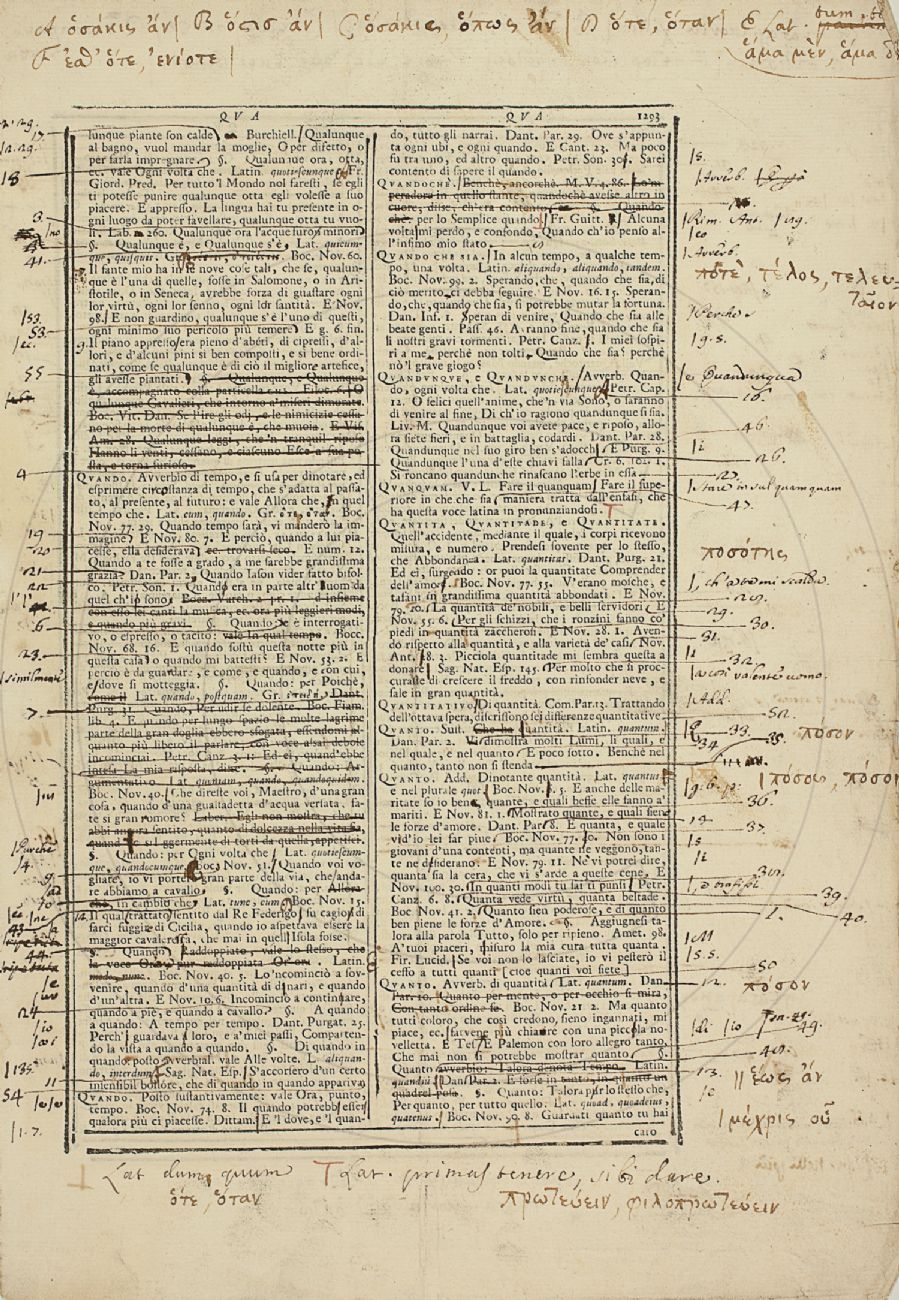 A ὁσάκις ἂν | B ὅσις ἂν | C ὁσάκις, ὅπως ἂν | D ὅτε, ὅταν | E Lat.
F ἔσθ' ὅτε, ἐνίοτε | ἅμα μὲν, ἅμα
QVA QVA 1293
lunque piante son calde Burchiell. Qualunque
al bagno, vuol mandar la moglie, O per difetto, o
per farla impregnare. §. Qualunque ora, otta,
ec. vale Ogni volta che. Latin. quotiescunque Fr.
Giord. Pred. Per tutto 'l Mondo nol faresti, se egli
ti potesse punire qualunque otta egli volesse a suo
piacere. E appresso. La lingua hai tu presente in o-
gni luogo da poter favellare qualunque otta tu vuo-
sti. Lab. n. 260. Qualunque ora l'acque furon minori
§. Qualunque è, e Qualunque s'è, Lat. quicum-
que, quisquis. Boc. Nov. 60.
Il fante mio ha in se nove cose tali, che se, qualun-
que è l'una di quelle, fosse in Salomone, o in Ari-
stotile, o in Seneca, avrebbe forza di guastare ogni
lor virtù, ogni lor senno, ogni lor santità. E Nov.
98. E non guardino, qualunque s'è l'uno di questi,
ogni minimo suo pericolo più temere E g. 6. fin.
Il piano appresso era pieno d'abeti, di cipressi, d'al-
lori, e d'alcuni pini sì ben composti, e sì bene ordi-
nati, come se qualunque è di ciò il migliore artefice,
gli avesse piantati. §. Qualunque, e Qualunque
e, accompagnato colla particella
qualunque Cavalieri, che intorno a' miseri dimorate.
Boc. Vit. Dan. Se Pire gli odj, e le nimicizie cessa-
no per la morte di qualunque è, che muoia. E Vis.
Am. 28. Qualunque leggi, che 'n tranquil riposo
Hanno li venti, cessano, e ciascuno Esce a sua po-
sta, e torna furioso.
QUANDO. Avverbio di tempo, e si usa per dinotare, ed
esprimere circostanza di tempo, che s'adatta al passa-
to, al presente, al futuro: e vale Allora che, In quel
tempo che. Lat. cum, quando. Gr. ὅτε, ὅταν. Boc.
Nov. 77. 29. Quando tempo sarà, vi manderò la im-
magine E Nov. 80. 7. E perciò, quando a lui pia-
cesse, ella desiderava ec. trovarsi seco. E num. 12.
Quando a te fosse a grado, a me sarebbe grandissima
grazia. Dan. Par. 2. Quando Iason vider fatto bifol-
co. Petr. Son. 1. Quando era in parte altr'uom da
quel ch'i' sono.
con esso lei canti la musa, ec. ora più leggieri modi,
e quando più gravi. §. Quando è interrogati-
vo, o espresso, o tacito: vale In qual tempo. Bocc.
Nov. 68. 16. E quando fostù questa notte più in
questa casa o quando mi battesti E Nov. 53. 2. E
perciò è da guardare, e come, e quando, e con cui,
e dove si motteggia. §. Quando: per Poichè,
Lat. quando, postquam. Gr. Dant.
Purg. 31. Quando, Per udir se' dolente. Boc. Fiam.
lib. 4. E quando per lungo spazio le molte lagrime
parte della gran doglia ebbero sfogata, essendomi al-
quanto più libero il parlare, con voce assai debole
incominciai. Petr. Canz. 3. 1. Ed ei, quand'ebbe
intesa La mia risposta, disse. §. Quando: Ar-
gumentativo. Lat. quando, quandoquidem.
Boc. Nov. 40. Che direste voi, Maestro, d'una gran
cosa, quando d'una guastadetta d'acqua versata, fa-
te sì gran romore? Laber. Egli non mostra, che tu
abbi ancora sentito, quanto di dolcezza nella vita sia,
quando sì leggermente di torti da quella appetisci.
§. Quando: per Ogni volta che. Lat. quotiescum-
que, quandocumque. Boc. Nov. 51. Quando voi vo-
gliate, io vi porterò gran parte della via, che andа-
re abbiamo a cavallo. §. Quando: per Allora
che, in cambio che Lat. tunc, cum. Boc. Nov. 15.
Il qual trattato sentito dal Re Federigo fu cagion di
farci fuggir di Cicilia, quando io aspettava essere la
maggior cavaleressa, che mai in quell'Isola fosse.
§. Quando Raddoppiato, vale lo stesso, che
la voce Ora, pur raddoppiata Or' ora. Latin.
modo, nunc. Boc. Nov. 40. 5. Lo 'ncominciò a sov-
venire, quando d'una quantità di dinari, e quando
d'un'altra. E Nov. 19. 6. Incominciò a continuare,
quando a piè, e quando a cavallo. §. A quando
a quando: A tempo per tempo. Dant. Purgat. 25.
Perch'i' guardava i loro, e a' miei passi, Comparten-
do la vista a quando a quando. §. Di quando in
quando posto avverbial. vale Alle volte. L. aliquan-
do, interdum Sag. Nat. Esp. S'accorsero d'un certo
insensibil bollore, che di quando in quando appariva
QUANDO. Posto sustantivamente: vale Ora, Punto,
tempo. Boc. Nov. 74. 8. Il quando potrebb'esser
qualora più ci piacesse. Dittam. E 'l dove, e 'l quan-
do, tutto gli narrai. Dant. Par. 29. Ove s'appun-
ta ogni ubi, e ogni quando. E Cant. 23. Ma poco
fu tra uno, ed altro quando. Petr. Son. 30. Sarei
contento di sapere il quando.
QUANDOCHÈ. Benchè, ancorchè. M. V. 4. 86. Lo 'm-
peradore in questo stante, quandochè avesse altro in
cuore, disse, ch'era contento, ec. §. Quando-
chè: per lo Semplice quando Fr. Guitt. R. Alcuna
volta mi perdo, e confondo, Quando ch'io penso al-
l'infimo mio stato
QUANDO CHE SIA. In alcun tempo, a qualche tem-
po, una volta. Latin. aliquando, aliquando, tandem.
Boc. Nov. 99. 2. Sperando, che, quando che sia, di
ciò merito ci debba seguire. E Nov. 16. 15. Speran-
do, che, quando che sia, si potrebbe mutar la fortuna.
Dan. Inf. 1. Speran di venire, Quando che sia alle
beate genti. Pass. 46. Avranno fine, quando che sia
li nostri gravi tormenti. Petr. Canz. I miei sospi-
ri a me perchè non tolti Quando che sia? perchè
nò 'l grave giogo?
QUANDUNQUE, e QUANDUNCHE. Avverb. Quan-
do, ogni volta che. Lat. quotiescunque Petr. Cap.
12. O felici quell'anime, che 'n via Sono, o saranno
di venire al fine, Di ch'io ragiono quandunque si sia.
Liv. M. Quandunque voi avete pace, e riposo, allo-
ra siete fieri, e in battaglia, codardi. Dant. Par. 28.
Quandunque nel suo giro ben s'adocchi E Purg. 9.
Quandunque l'una d'este chiavi falla Cr. 6. 101. 1.
Si roncano quandunche rinascan l'erbe in essa
QUANQUAM. V. L. Fare il quanquam Fare il supe-
riore in che che sia maniera tratta dall'enfasi, che
ha questa voce latina in pronunziandosi.
QUANTITÀ, QUANTITADE, e QUANTITATE.
Quell'accidente, mediante il quale, i corpi ricevono
misura, e numero. Prendesi sovente per lo stesso,
che Abbondanza. Lat. quantitas. Dant. Purg. 21.
Ed ei, surgendo: or puoi la quantitate Comprender
dell'amor Boc. Nov. 77. 55. V'erano mosche, e
tafani in grandissima quantità abbondati. E Nov.
79. La quantità de' nobili, e belli servidori E
Nov. 55. 6. Per gli schizzi, che i ronzini fanno co'
piedi in quantità zaccherosi. E Nov. 28. 1. Aven-
do rispetto alla quantità, e alla varietà de' casi Nov.
Ant. 8. 3. Picciola quantitade mi sembra questa a
donare Sag. Nat. Esp. 145. Per mosto che si proc-
curasse di crescere il freddo, con rinfonder neve, e
sale in gran quantità.
QUANTITATIVO. Di quantità. Com. Par. 13. Trattando
dell'ottava spera, discrissono sei differenze quantitative
QUANTO. Sust. Che ha quantità. Latin. quantum.
Dan. Par. 2. Vi dimostra molti Lumi, li quali, e
nel quale, e nel quanto E poco sotto. Benchè nel
quanto, tanto non si stenda
QUANTO. Add. Dinotante quantità. Lat. quantus
e nel plurale quot Boc. Nov. 5. E anche delle ma-
ritate so io bene, quante, e quali beffe elle fanno a'
mariti. E Nov. 81. 1. Mostrato quante, e quali siene
le forze d'amore. Dant. Par. 8. E quanta, e quale
vid'io lei far piue Boc. Nov. 77. Non sono i
giovani d'una contenti, ma quante ne veggono, tan-
te ne disiderano. E Nov. 79. 11. Ne vi potrei dire,
quanta sia la cera, che vi s'arde a queste cene. E
Nov. 100. 30. In quanti modi tu sai ti punsi Petr.
Canz. 6. 8. Quanta vede virtù, quanta beltade.
Boc. Nov. 41. 2. Quanto sien poderose, e di quanto
ben piene le forze d'Amore. §. Aggiugnesi ta-
lora alla parola Tutto, solo per ripieno. Amet. 98.
A' tuoi piaceri, misuro la mia cura tutta quanta.
Fir. Lucid. Se voi non lo lasciate, io vi pesterò il
cesso a tutti quanti [cioe quanti voi siete]
QUANTO. Avverb. di quantità Lat. quantum. Dan.
Par. 10. Quanto per mente, o per occhio si mira,
Con tanto ordine fe. Boc. Nov. 21. 2. Ma quanto
tutti coloro, che così credono, sieno ingannati, mi
piace, ec. farvene più chiare con una piccola no-
velletta. E Tes. E Palemon con loro allegro tanto,
Che mai non si potrebbe mostrar quanto §.
Quanto avverbio: Talora denota Tempo. Latin.
quandiu Dan. Par. 2. E forse in tanto, in quanto un
quadrel posa. §. Quanto: Talora per lo stesso che,
Per quanto, per tutto quello. Lat. quoad, quoadeius,
quatenus. Boc. Nov. 30. 8. Guardati quanto tu hai
caro
πότε, τέλος, τελευ-
ταῖον
e Quandunqua
fare in sul quamquam
ποσότης
πόσον
πόσος, πόσοι
πόσον
ἕως ἂν
μέχρις οὗ
Lat dum, quum T Lat. primas tenere, sibi dare.
ὅτε, ὅταν πρωτεύειν, φιλοπρωτεύειν